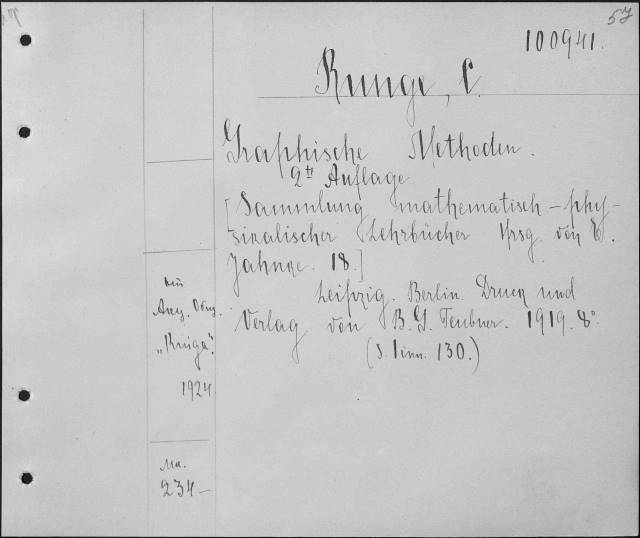 57
100941.
Runge, C.
Graphische Methoden.
2te Auflage
[Sammlung mathematisch-phy-
sikalischer Lehrbücher hrsg. von E.
Jahnke. 18.]
Leipzig. Berlin. Druck und
Verlag von B. G. Teubner. 1919. 8°.
(S. 1 inn. 130.)
"Kniga".
1924
Ma.
234–